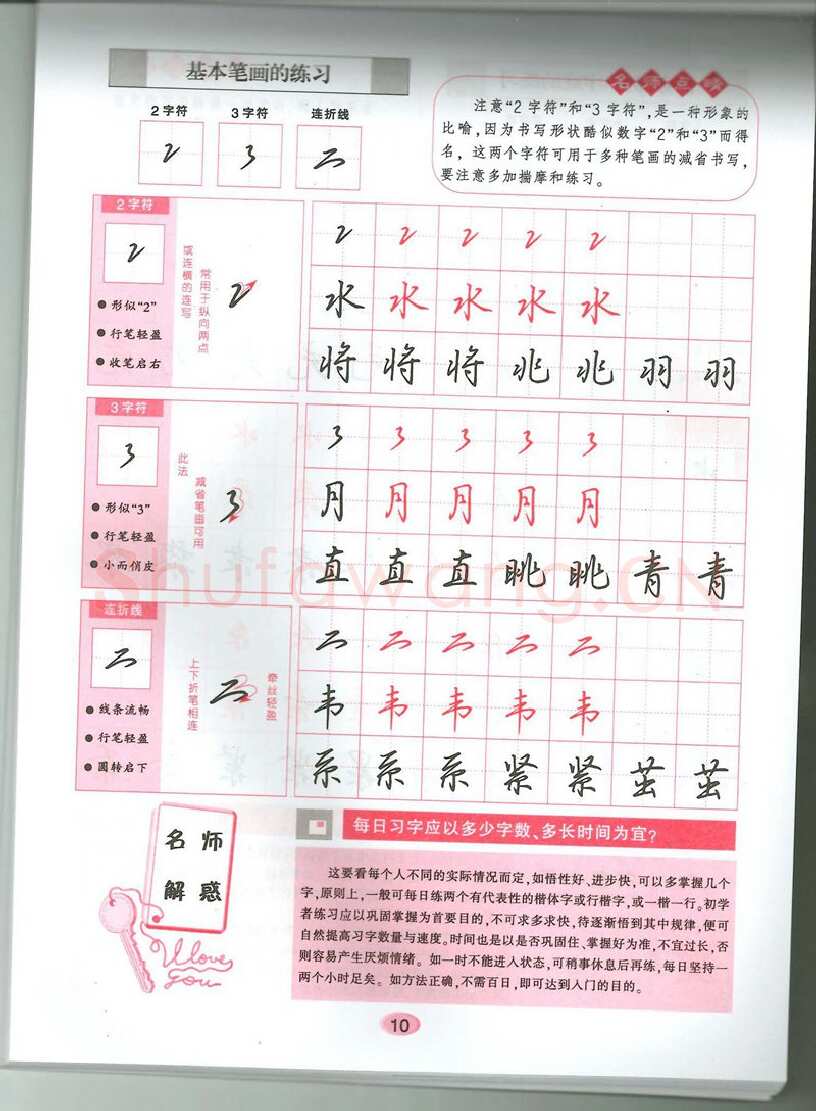 基本笔画的练习
名师点睛
2字符 3字符 连折线
2 3
注意“2字符”和“3字符”,是一种形象的
比喻,因为书写形状酷似数字“2”和“3”而得
名,这两个字符可用于多种笔画的减省书写,
要注意多加揣摩和练习。
2字符
2
形似“2”
行笔轻盈
收笔启右
常用于纵向两点
或连横的连写
2
2 2 2 2 2
水 水 水 水 水
将 将 将 兆 兆 羽 羽
3字符
3
形似“3”
行笔轻盈
小而俏皮
减省笔画可用
此法
3
3 3 3 3 3
月 月 月 月 月
直 直 直 眺 眺 青 青
Shufawang.CN
连折线
线条流畅
行笔轻盈
圆转启下
牵丝轻盈
上下折笔相连
韦 韦 韦 韦 韦
系 系 系 紧 紧 茧 茧
名师
解惑
I love
you
每日习字应以多少字数、多长时间为宜?
这要看每个人不同的实际情况而定,如悟性好、进步快,可以多掌握几个
字,原则上,一般可每日练两个有代表性的楷体字或行楷字,或一楷一行。初学
者练习应以巩固掌握为首要目的,不可求多求快,待逐渐悟到其中规律,便可
自然提高习字数量与速度。时间也是以是否巩固住、掌握好为准,不宜过长,否
则容易产生厌烦情绪。如一时不能进入状态,可稍事休息后再练,每日坚持一
两个小时足矣。如方法正确,不需百日,即可达到入门的目的。
10